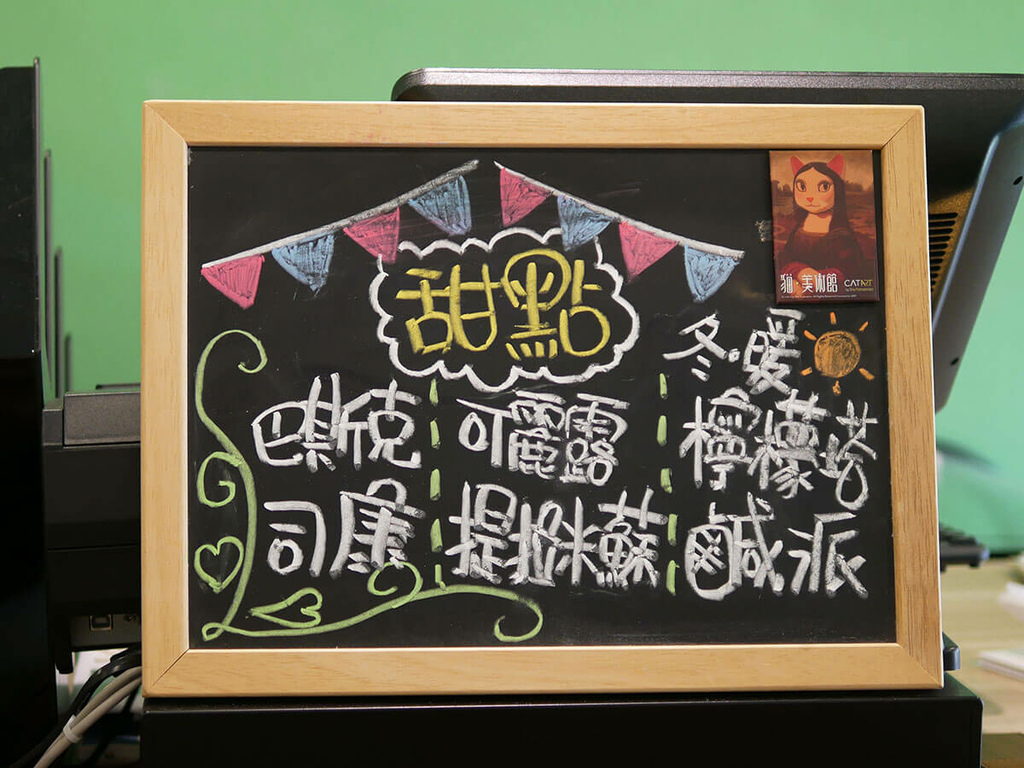 甜點
冬·暖
巴斯克
可麗露
檸檬塔
司康
提拉米蘇
鹹派
猫·美術館
CATART